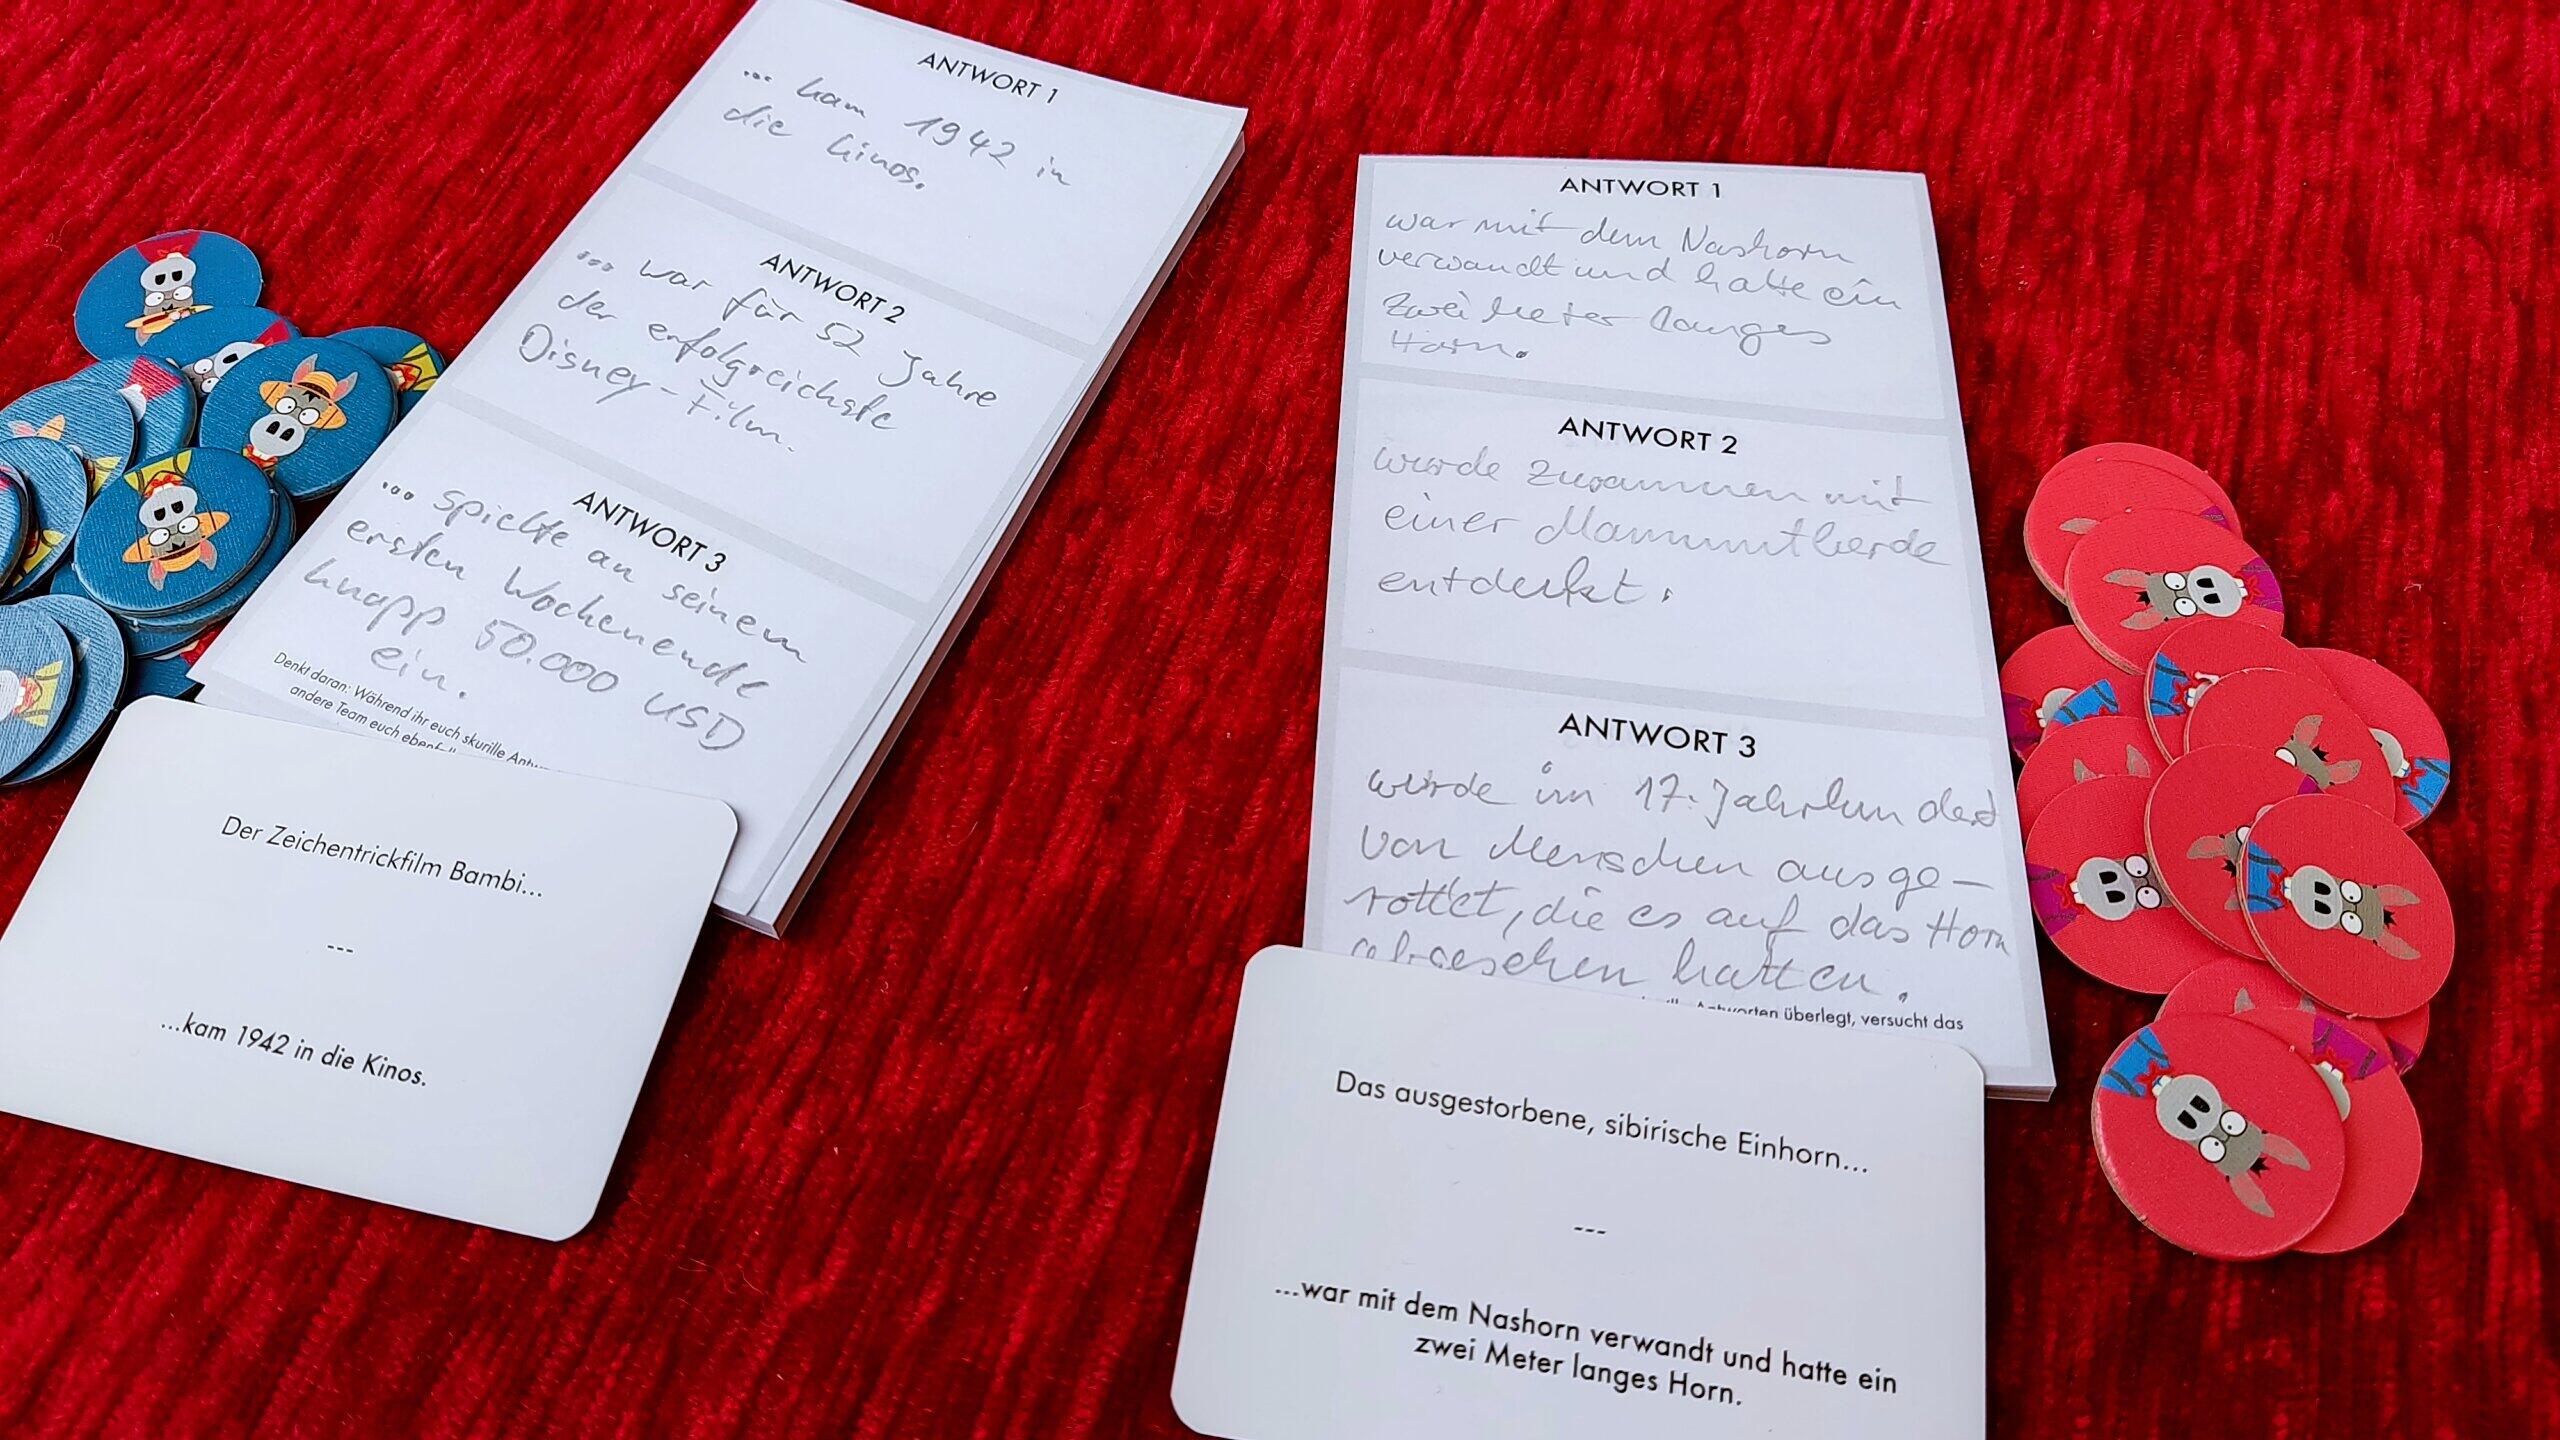 ANTWORT 1
... kam 1942 in
die Kinos.
ANTWORT 2
... war für 52 Jahre
der erfolgreichste
Disney-Film.
ANTWORT 3
... spielte an seinem
ersten Wochenende
knapp 50.000 USD
ein.
Denkt daran: Während ihr euch skurille
andere Team euch
Der Zeichentrickfilm Bambi...
---
...kam 1942 in die Kinos.
ANTWORT 1
war mit dem Nashorn
verwandt und hatte ein
zwei Meter langes
Horn.
ANTWORT 2
wurde zusammen mit
einer Mammutherde
entdeckt.
ANTWORT 3
wurde im 17. Jahrhundert
von Menschen ausge-
rottet, die es auf das Horn
abgesehen hatten.
Antworten überlegt, versucht das
Das ausgestorbene, sibirische Einhorn...
---
...war mit dem Nashorn verwandt und hatte ein
zwei Meter langes Horn.